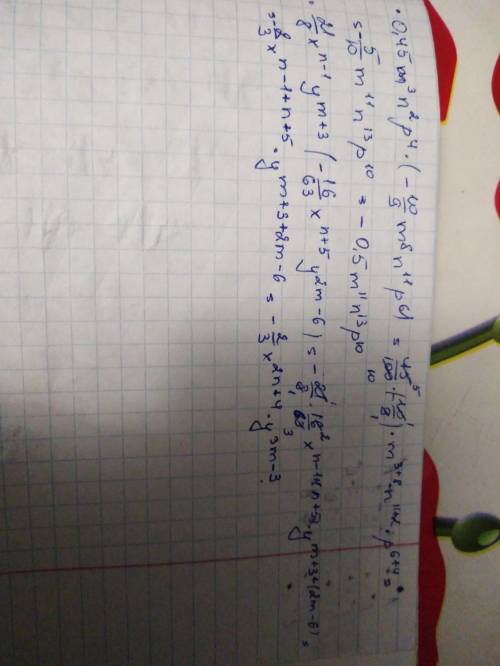 • 0,45 m³n²p⁴ · (− 10/9 m⁸n¹¹p⁶) = 45/100 · (−10/9) · m³⁺⁸ · n¹¹⁺² · p⁶⁺⁴ =
= − 5/10 m¹¹n¹³p¹⁰ = − 0,5 m¹¹n¹³p¹⁰
• 21/8 x n-1 y m+3 (− 16/63 x n+5 y 2m-6) = − 21/8 · 16/63 x n-1+(n+5) · y m+3+(2m-6) =
= − 2/3 x n-1+n+5 · y m+3+2m-6 = − 2/3 x 2n+4 · y 3m-3